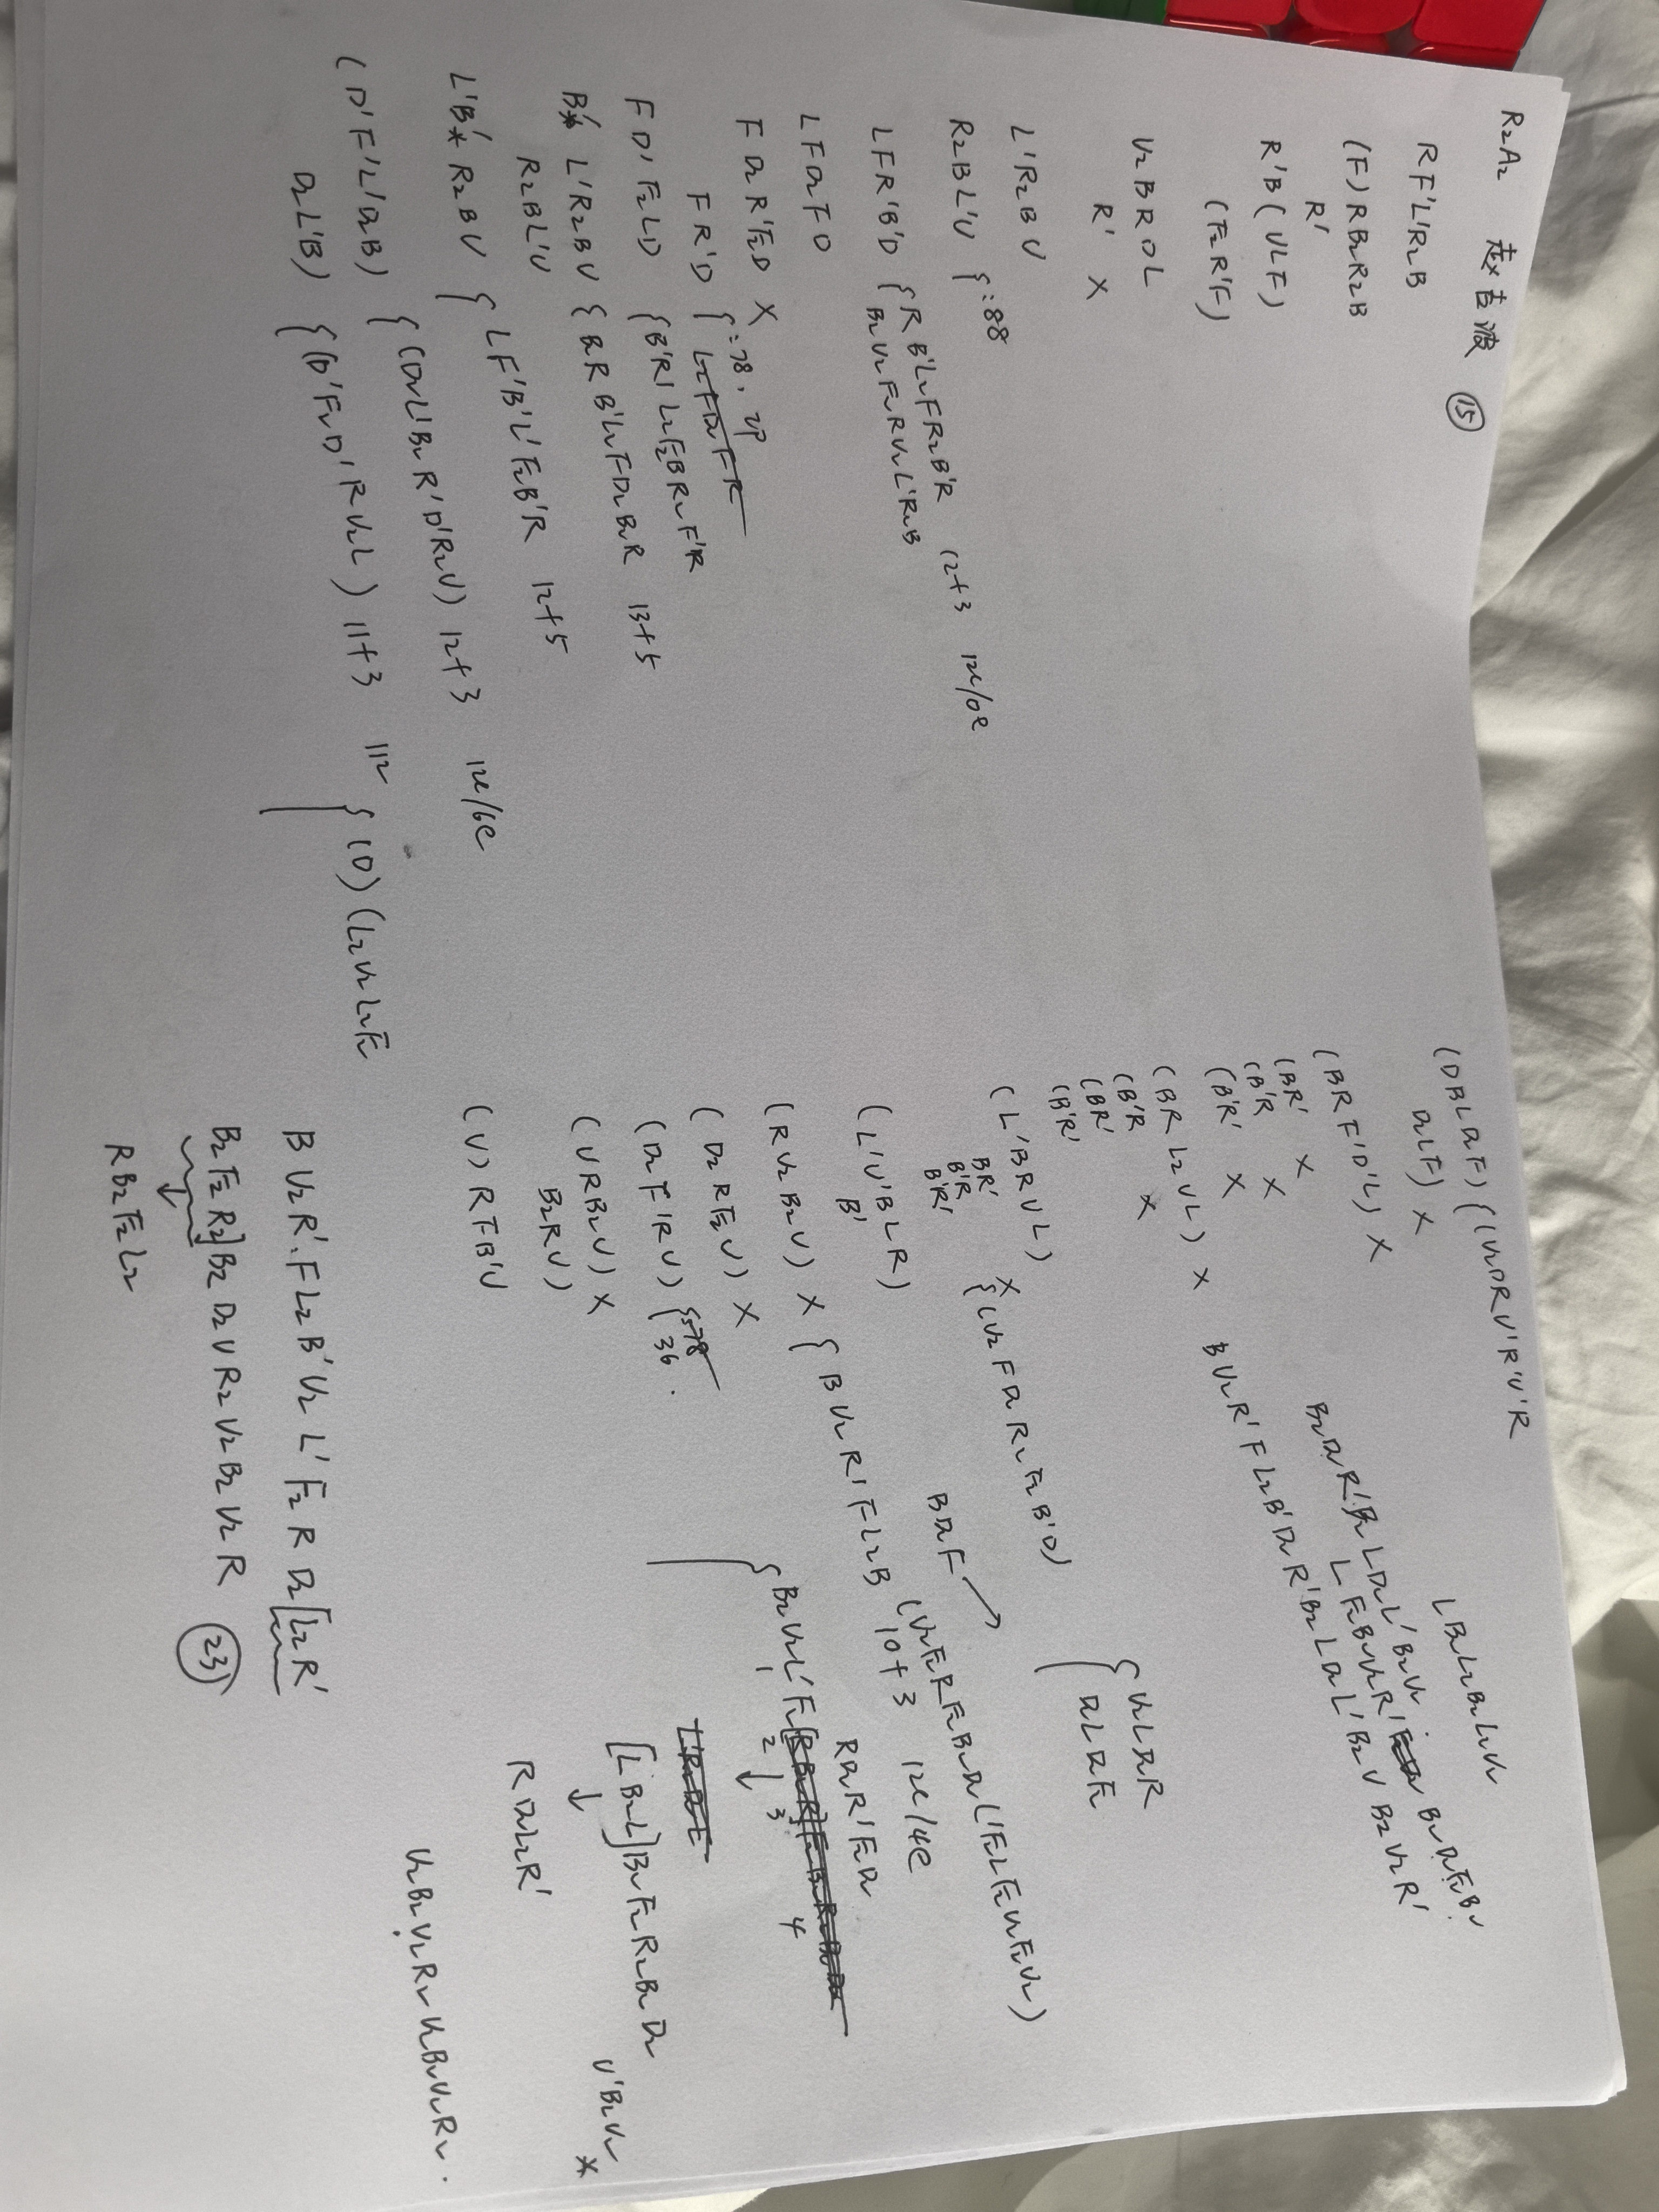 R2A2 赵吉波 ⑮
RF'L'R2B
(F)RB2R2B
R'
R'B(ULF)
(F2R'F)
U2BRDL
R' X
L'R2BU
R2BL'U {:88
LFR'B'D {RB'L2FR2B'R 12+3 12c/0e
B2U2F2RU2L'R2B
LFD2FD
FD2R'F2D X
FR'D {:78. 2P
L2FD2FR
FD'F2LD {B'R'L2F2BR2F'R
B'* L'R2BU {B2RB'L2FD2B2R 13+5
R2BL'U
L'B'* R2BU {LF'B'L'F2B'R 12+5
(D'F'L'D2B) {(D2L'B2R'D'R2U) 12+3 12c/6e
D2L'B) {(D'F2D'RU2L) 11+3 112 {(D)(L2U2L2F2
(DBLD2F)(U2DRU'R'U'R
D2LF) X
(BRF'D'L) X
(BR' X
(B'R X
(B'R' X
(BRL2UL) X
(B'R X
(BR'
(B'R'
(L'BRUL) X {(U2FD2R2F2B'D)
BR'
B'R
B'R'
(L'U'BLR)
B'
(RU2B2U) X {BU2R'FL2B 10+3 12c/4e
(D2RF2U) X
(D2F'RU) {:78
36.
(URB2U) X
B2RU)
(U)RFB'U
LB2L2B2L2U2
B2D2R'B2LD2L'B2U2. B2D2F2B2
LF2B2U2R'
BU2R'FL2B'D2R'B2LD2L'B2U B2U2R'
{U2LD2R
D2LD2F2
BD2F
(U2F2RF2B2D2L'F2LF2U2F2U2)
RD2R'F2D2
{B2U2L'F2
1 2 ↓ 3 4
[LB2L]B2F2R2B2D2
↓
RD2L2R'
U'B2U2 *
U2B2U2R2U2B2U2R2.
BU2R'.FL2B'U2L'F2RD2[L2R'
B2F2R2]B2D2UR2U2B2U2R ㉓
↓
RB2F2L2